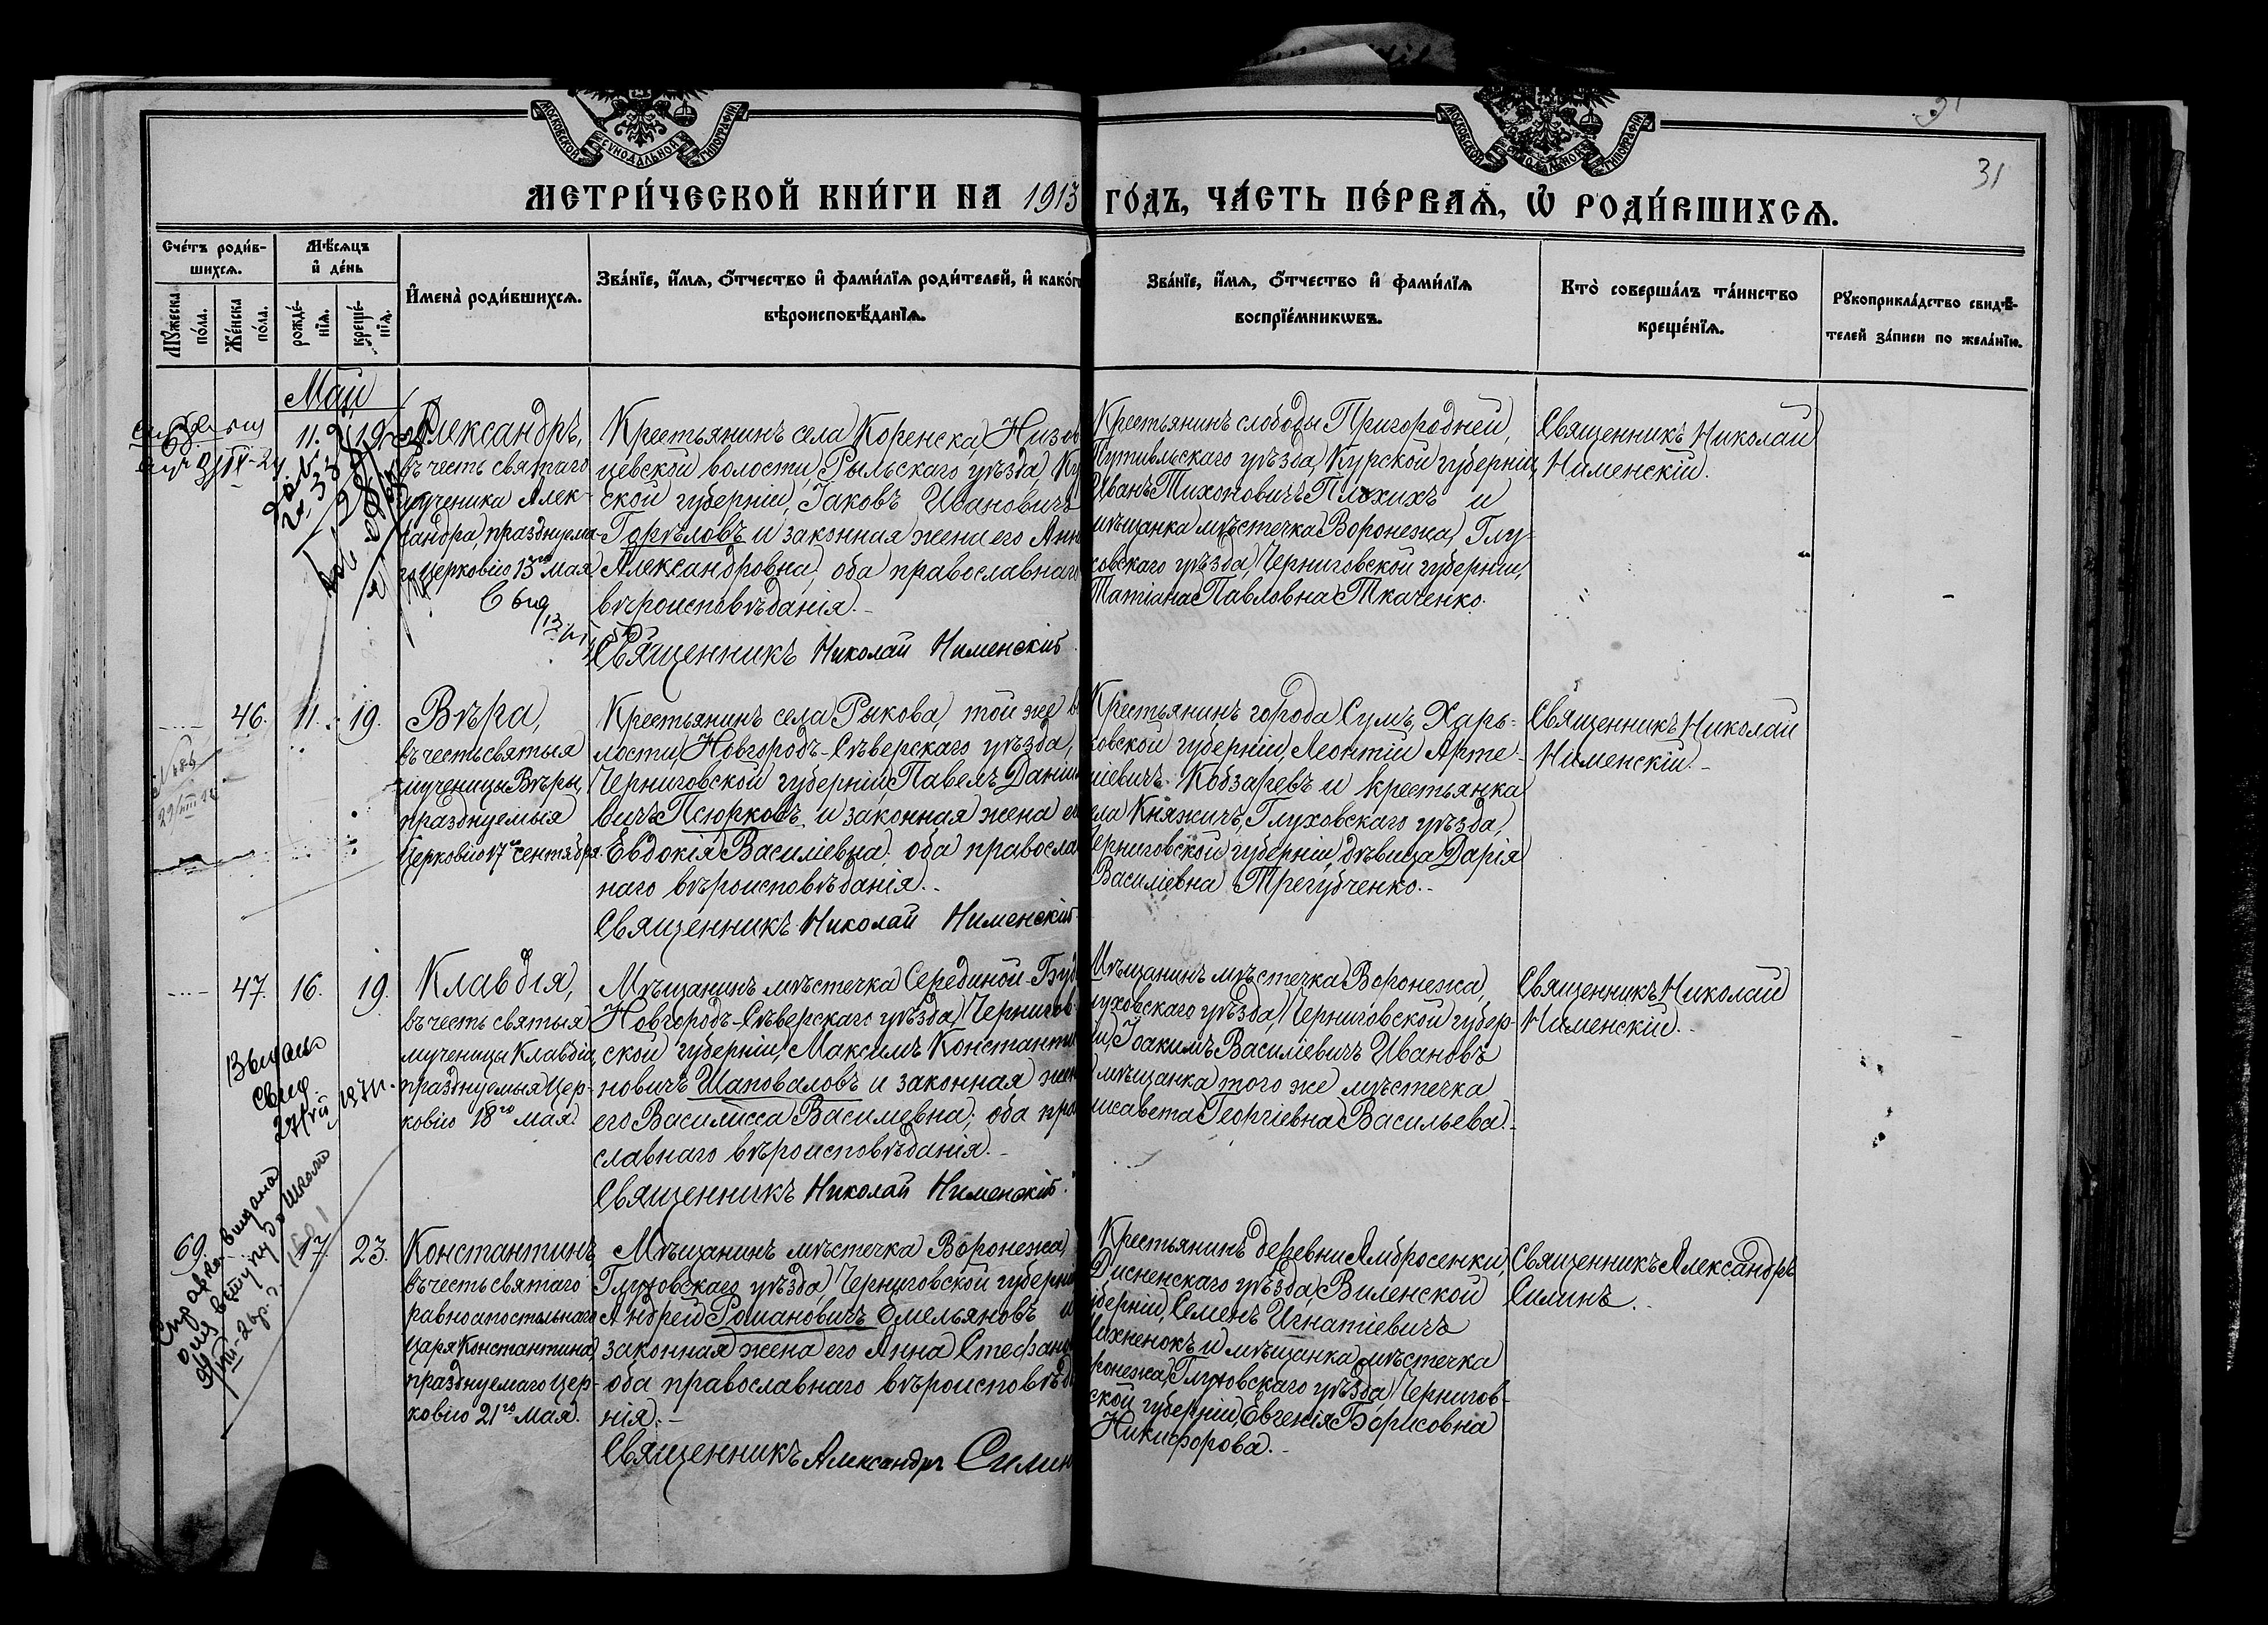 МОСКОВСКОЙ СѴНОДАЛЬНОЙ ТИПОГРАФІИ
МОСКОВСКОЙ СѴНОДАЛЬНОЙ ТИПОГРАФІИ
31
МЕТРИ́ЧЕСКОЙ КНИ́ГИ НА 1913 ГО́ДЪ, ЧА́СТЬ ПЕ́РВАѦ, Ѡ҆ РОДИ́ВШИХСѦ.
Сче́тъ роди́в-
шихсѧ.
Мѣ́сѧцъ
и҆ де́нь
Мꙋ́жеска
по́ла.
Же́нска
по́ла.
рожде́-
нїѧ.
креще́-
нїѧ.
И҆мена̀ роди́вшихсѧ.
Зва́нїе, и҆́мѧ, ѻ҆́тчество и҆ фами́лїѧ роди́телей, и҆ како́г
вѣроисповѣ́данїѧ.
Зва́нїе, и҆́мѧ, ѻ҆́тчество и҆ фами́лїѧ
воспрїе́мникѡвъ.
Кто̀ соверша́лъ та́инство
креще́нїѧ.
Рꙋкоприкла́дство свидѣ́-
телей за́писи по жела́нїю.
Май
68.
11.
19.
Александръ,
въ честь святаго
мученика Алек-
сандра, празднуема-
го Церковію 13го мая
Крестьянинъ села Коренска, Низов
цевской волости, Рыльскаго уѣзда, Ку
ской губерніи, Іаковъ Ивановичъ
Горѣловъ и законная жена его Анн
Александровна, оба православнаго
вѣроисповѣданія.-
Священникъ Николай Нименскій
Крестьянинъ слободы Пригородней,
Путивльскаго уѣзда, Курской губерніи,
Иванъ Тихоновичъ Плохихъ и
мѣщанка мѣстечка Воронежа, Глу-
ховскаго уѣзда, Черниговской губерніи,
Татіана Павловна Ткаченко.
Священникъ Николай
Нименскій.
46.
11.
19.
Вѣра,
въ честь святыя
мученицы Вѣры,
празднуемыя
Церковію 17го сентября
Крестьянинъ села Рыкова, той же во
лости, Новгородъ-Сѣверскаго уѣзда,
Черниговской губерніи, Павелъ Даніи
вичъ Псюрковъ и законная жена ег
Евдокія Василіевна, оба правосла
наго вѣроисповѣданія.-
Священникъ Николай Нименскій
Крестьянинъ города Сумъ, Харь-
ковской губерніи, Леонтій Арте-
міевичъ Кобзаревъ и крестьянка
ела Княжичъ, Глуховскаго уѣзда,
Черниговской губерніи, дѣвица Дарія
Василіевна Трегубченко.-
Священникъ Николай
Нименскій.-
47.
16.
19.
Клавдія,
въ честь святыя
мученицы Клавдіи,
празднуемыя Цер-
ковію 18го мая.
Мѣщанинъ мѣстечка Серединой-Буд
Новгородъ-Сѣверскаго уѣзда, Чернигов
ской губерніи, Максимъ Константи
новичъ Шаповаловъ и законная жен
его Василисса Василіевна; оба пра
славнаго вѣроисповѣданія.-
Священникъ Николай Нименскій.
Мѣщанинъ мѣстечка Воронежа,
луховскаго уѣзда, Черниговской губер-
іи, Іоакимъ Василіевичъ Ивановъ
мѣщанка того же мѣстечка
лисавета Георгіевна Васильева.-
Священникъ Николай
Нименскій.-
Справка видана
для вступу до школи
69.
17.
23.
Константинъ,
въ честь святаго
равноапостольнаго
Царя Константина,
празднуемаго Цер-
ковію 21го мая.
Мѣщанинъ мѣстечка Воронежа,
Глуховскаго уѣзда, Черниговской губерни
Андрей Романовичъ Емельяновъ и
законная жена его Анна Стефано
оба православнаго вѣроисповѣда
нія.-
Священникъ Александръ Силин
Крестьянинъ деревни Амбросенки,
Дисненскаго уѣзда, Виленской
уберніи, Семенъ Игнатіевичъ
Михненокъ и мѣщанка мѣстечка
ронежа, Глуховскаго уѣзда, Чернигов-
ской губерніи, Евгенія Борисовна
Никифорова.-
Священникъ Александръ
Силинъ.-